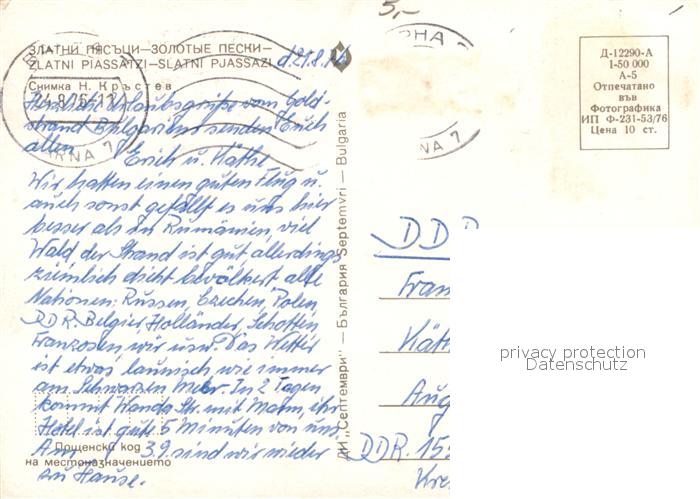 5,-
ЗЛАТНИ ПЯСЪЦИ—ЗОЛОТЫЕ ПЕСКИ—
ZLATNI PIASSATZI—SLATNI PJASSAZI
d. 21.8.
Снимка Н. Кръстев
Herzliche Urlaubsgrüße vom Gold-
strand Bulgariens senden Euch
allen Erich u. Käthe
Wir hatten einen guten Flug u.
auch sonst gefällt es uns hier
besser als in Rumänien, viel
Wald der Strand ist gut allerdings
ziemlich dicht bevölkert alle
Nationen: Russen, Czechen, Polen,
DDR. Belgier, Holländer, Schotten,
Franzosen, wir usw. Das Wetter
ist etwas launisch wie immer
am Schwarzen Meer. In 2 Tagen
kommt Wanda Str. mit Mann, ihr
Hotel ist gute 5 Minuten von uns.
Am 3.9. sind wir wieder
zu Hause.
Пощенски код
на местоназначението
ДИ „Септември" — България Septemvri — Bulgaria
VARNA 7
Д-12290-А
1-50 000
А-5
Отпечатано
във
Фотографика
ИП Ф-231-53/76
Цена 10 ст.
DDR
Fran
Käth
Aug
DDR. 15
Kre
privacy protection
Datenschutz